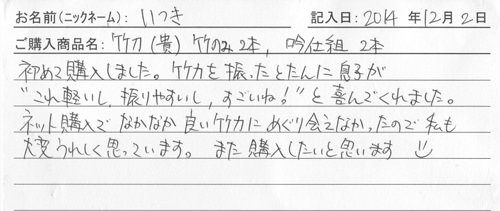 お名前(ニックネーム): いつき 記入日: 2014 年 12 月 2 日
ご購入商品名: 竹刀(貴) 竹のみ2本, 吟仕組 2本
初めて購入しました。竹刀を振ったとたんに息子が
"これ軽いし、振りやすいし、すごいね!"と喜んでくれました。
ネット購入でなかなか良い竹刀にめぐり会えなかったので私も
大変うれしく思っています。 また購入したいと思います